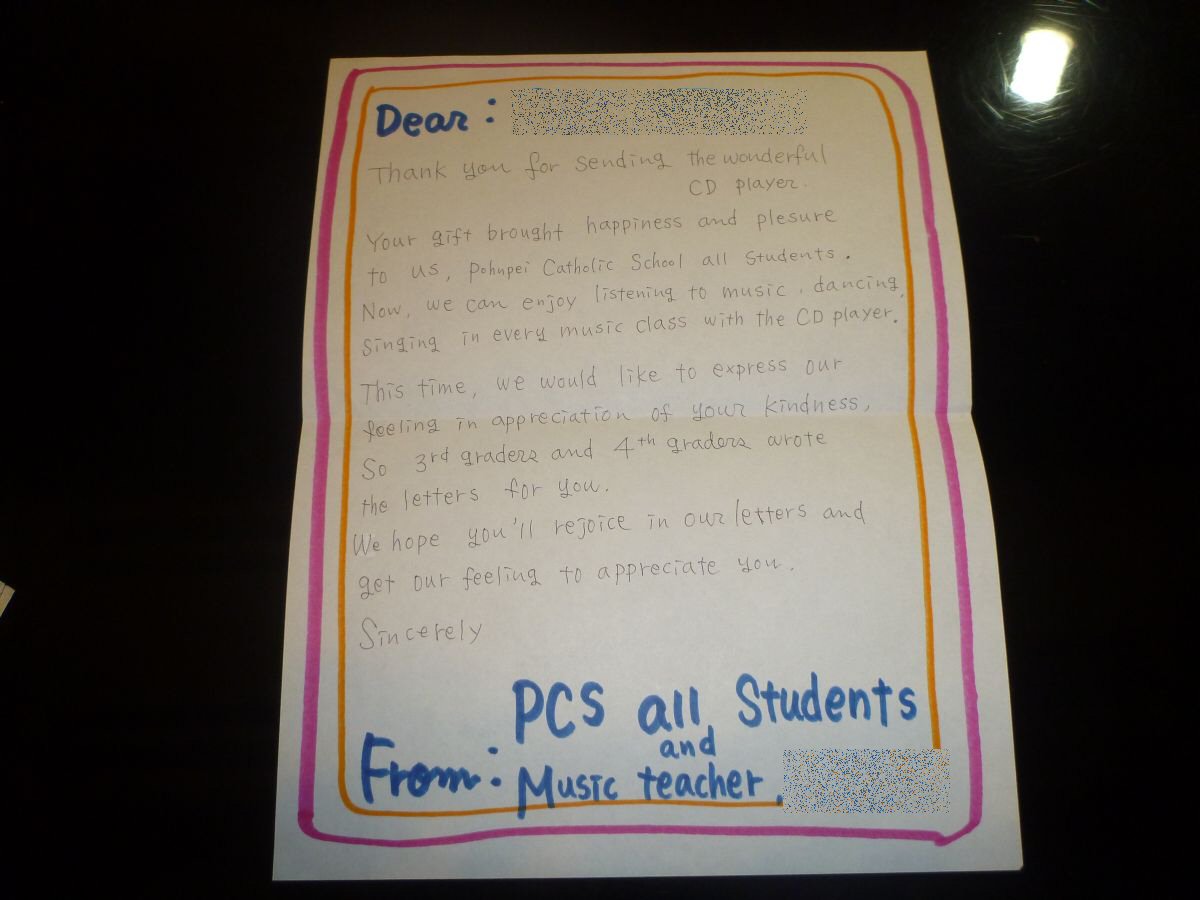 Dear:
Thank you for sending the wonderful
CD player.
Your gift brought happiness and plesure
to us, Pohnpei Catholic School all students.
Now, we can enjoy listening to music, dancing,
singing in every music class with the CD player.
This time, we would like to express our
feeling in appreciation of your kindness,
So 3rd graders and 4th graders wrote
the letters for you.
We hope you'll rejoice in our letters and
get our feeling to appreciate you.
Sincerely
PCS all Students
and
From: Music teacher,